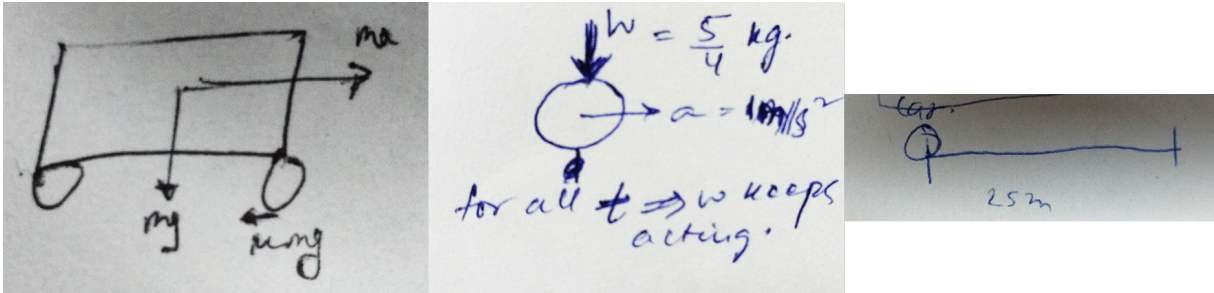 ma
mg
μmg
W = 5/4 kg.
a = 1m/s²
for all t ⇒ w keeps
acting.
Car.
25m